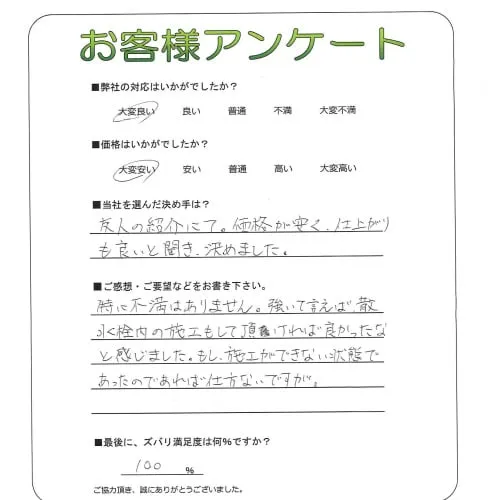 お客様アンケート
■弊社の対応はいかがでしたか？
大変良い 良い 普通 不満 大変不満
■価格はいかがでしたか？
大変安い 安い 普通 高い 大変高い
■当社を選んだ決め手は？
友人の紹介にて。価格が安く、仕上がり
も良いと聞き、決めました。
■ご感想・ご要望などをお書き下さい。
特に不満はありません。強いて言えば、散
水栓内の施工もして頂ければ良かったな
と感じました。もし、施工ができない状態で
あったのであれば仕方ないですが。
■最後に、ズバリ満足度は何％ですか？
100 %
ご協力頂き、誠にありがとうございました。